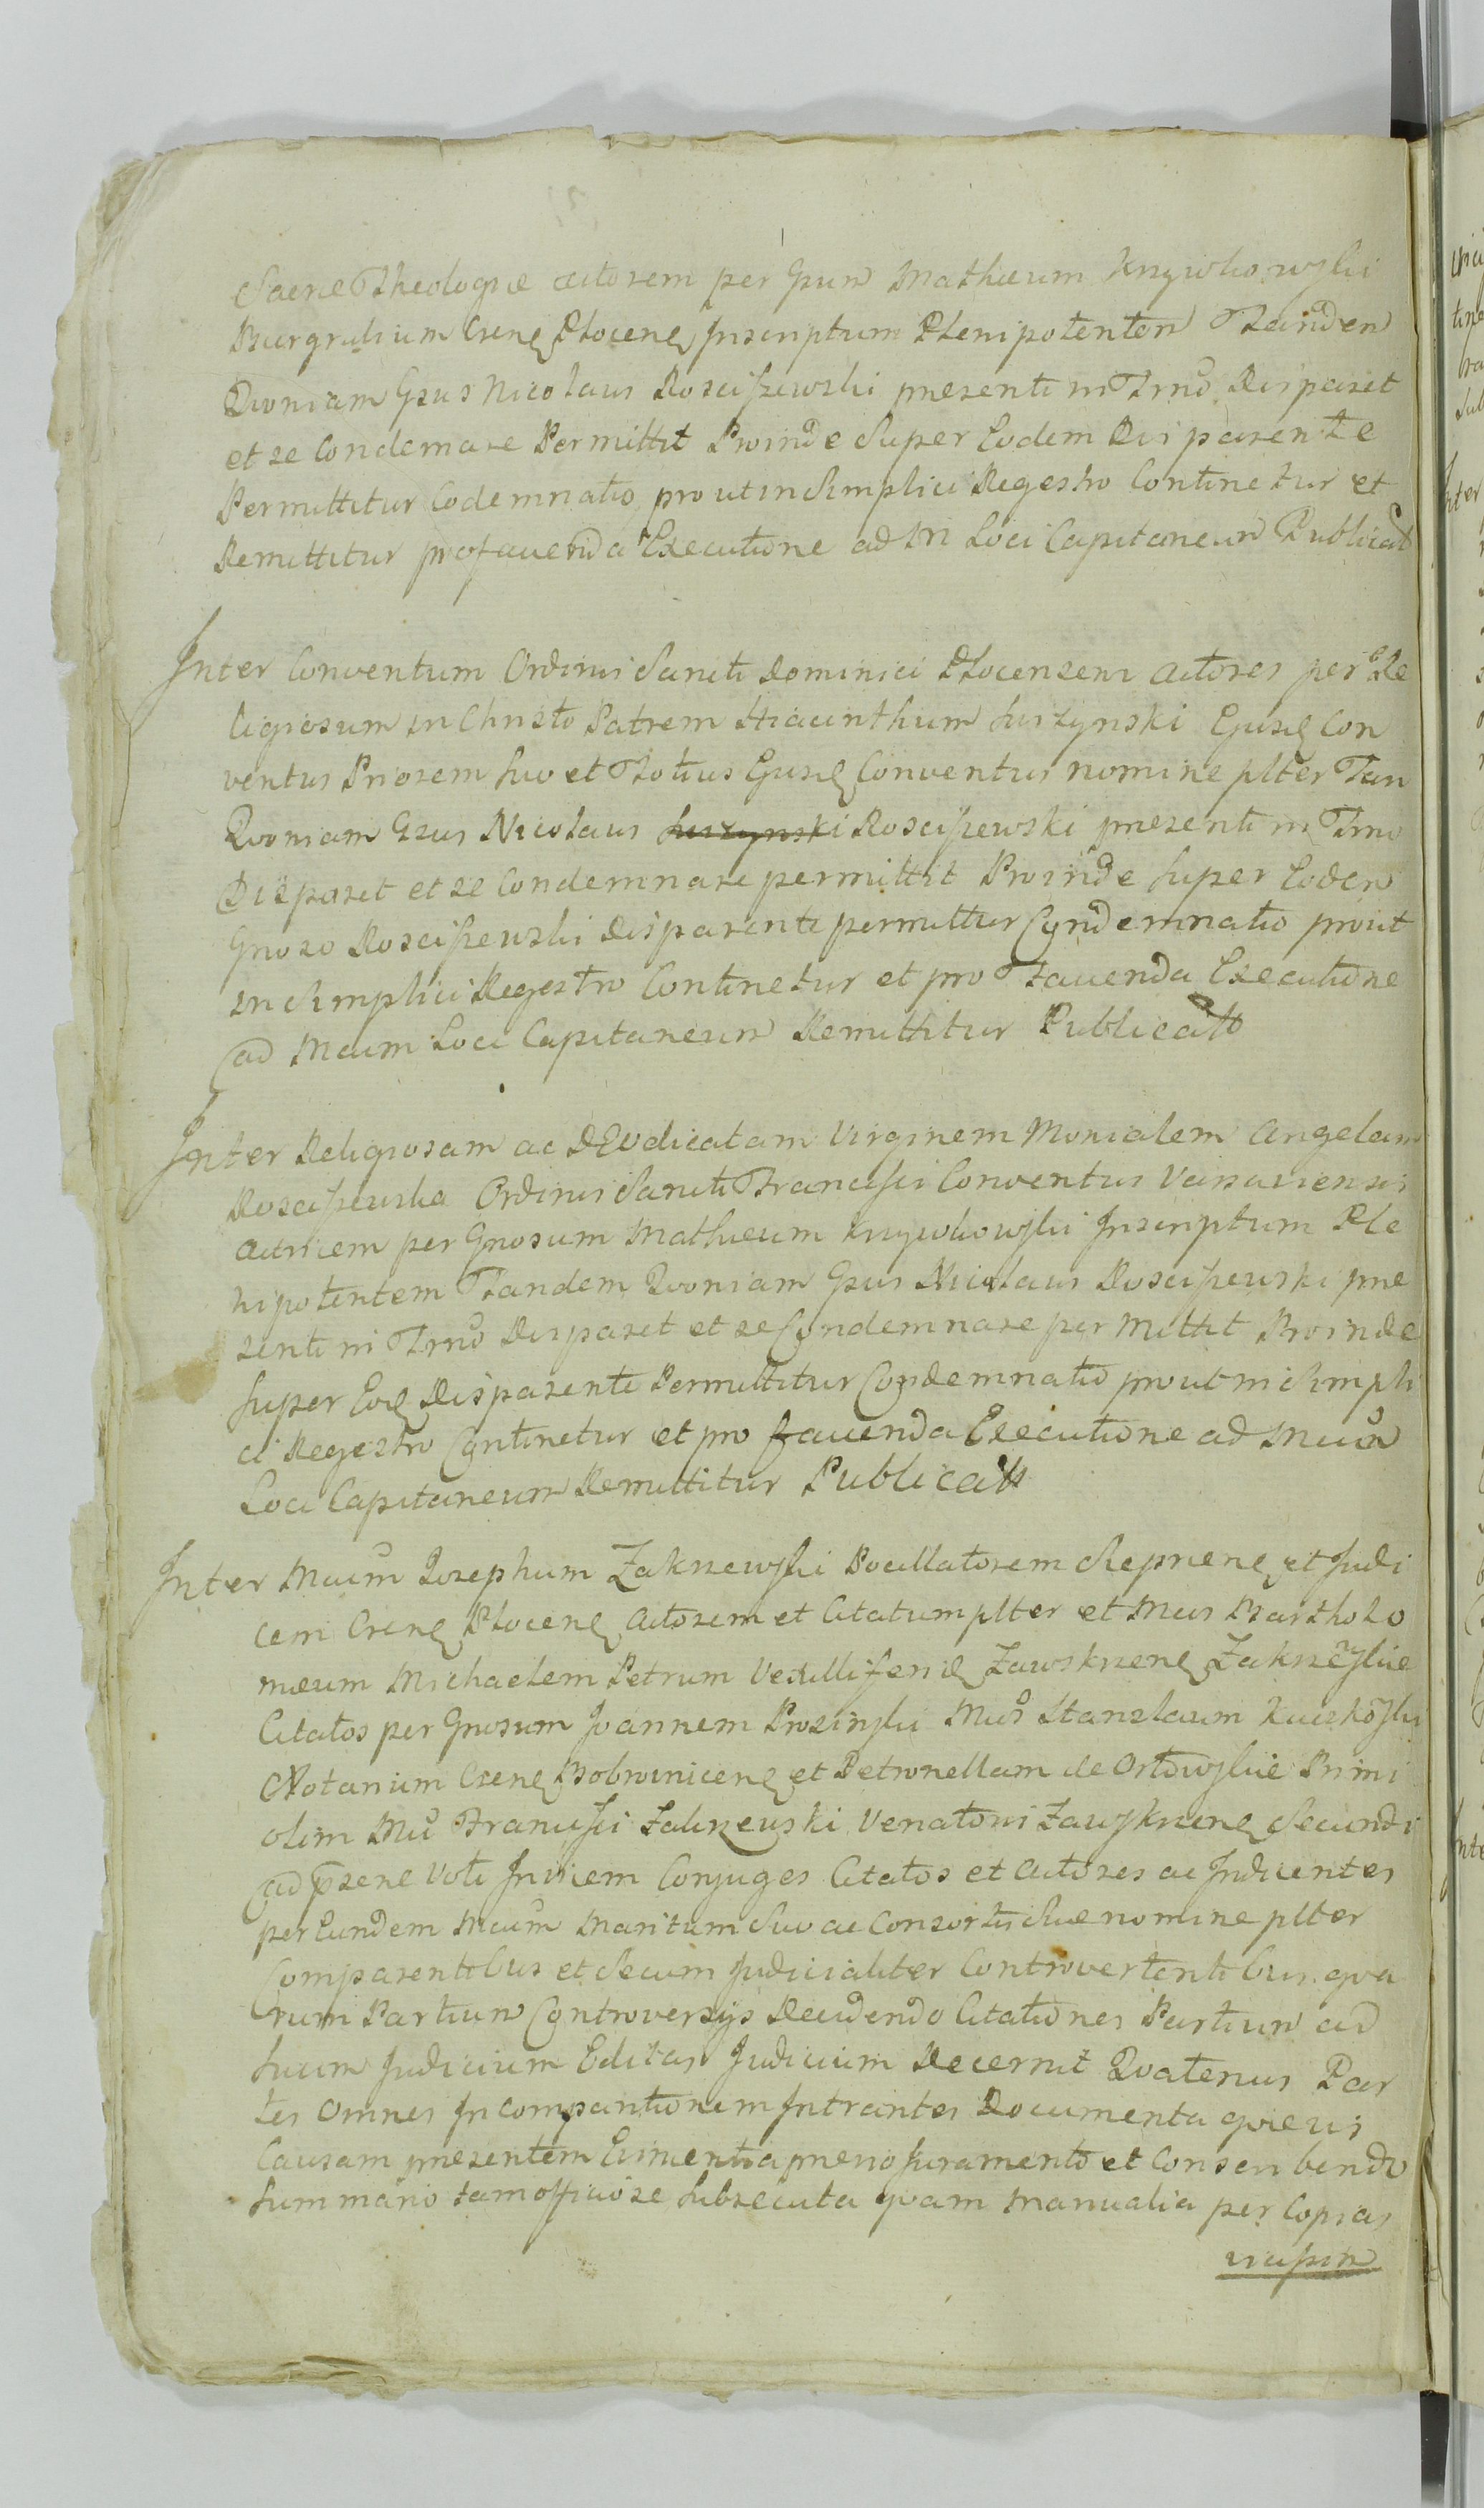 Sacræ Theologiæ actorem per Gsum Mathæum Krzywkowski
Burgrabium Csrens Plocens Inscriptum Plenipotentem Tandem
Quoniam Gsus Nicolaus Rosciszewski presenti in Trno Disparet
et se Condemnare Permittit Proinde Super Eodem Disparente
Permittitur Codemnatio prout in Simplici Regestro Continetur et
Remittitur pro favenda Executione ad M Loci Capitaneum Publicat
Inter Conventum Ordinis Sancti Dominici Plocensem actores per Re
ligiosum in Christo Patrem Hiacinthum Luszynski Ejusd Con
ventus Priorem Suo et Totius Ejusd Conventus nomine plter Tan
Quoniam Gsus Nicolaus Luszynski Rosciszewski presenti in Trno
Disparet et se Condemnare permittit Proinde Super Eodem
Gnoso Rosciszewski Disparenti permittur Condemnatio prout
in Simplici Regestro Continetur et pro Favenda Executione
ad Mcum Loci Capitaneum Remittitur Publicatt
Inter Religiosam ac DEodicatam Virginem Monialem Angelam
Rosciszewska Ordinis Sancti Francisci Conventus Varsaviensis
actricem per Gnosum Mathæum Krzywkowski Inscriptum Ple
nipotentem Tandem Quoniam Gsus Nicolaus Rosciszewski pre
senti in Trno Disparet et se Condemnare per Mittit Proinde
Super Eod Disparenti Permittitur Condemnatio prout in Simpli
ci Regestro Continetur et pro favenda Executione ad Mcum
Loci Capitaneum Remittitur Publicatt
Inter Mcum Josephum Zakrzewski Pocillatorem Sieprcens et Judi
cem Csrens Plocens Actorem et Citatum plter et Mcos Bartholo
mæum Michaelem Petrum Vexilliferid Zawskrzens Zakrzewskie
Citatos per Gnosum Joannem Prosinski Mcos Stanislaum Kuczkowski
Notarium Csrens Bobrownicens et Petronellam de Orłowskie Primi
olim Mci Francisci Zakrzewski Venatoris Zawskrzens Secundi
ad præsens Voti Invicem Conjuges Citatos et actores ac Inducentes
per Eundem Mcum Maritum Suo ac Consortis Suæ nomine plter
Comparentibus et Secum Judicialiter Controvertentibus. qua
rum Partium Controversijs Decidendo Citationes Partium ad
Suum Judicium Editas Judicium Decernit Quatenus Par
tes Omnes In Comparitionem Intrantes Documenta quævis
Causam presentem Eiimentia prævio Juramento et Conscribendo
Summario tam officiose Subsecuta quam Manualia per Copias